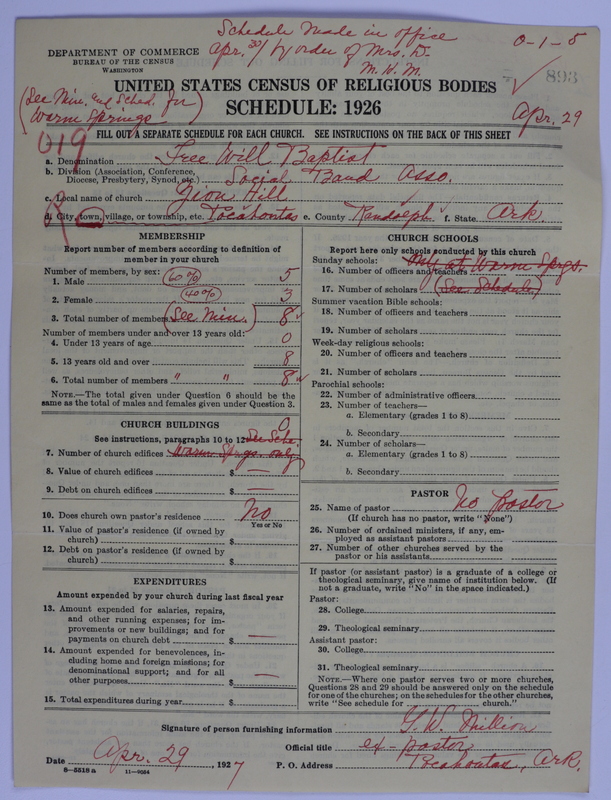 Schedule Made in office
Apr. 30/ by order of Mrs. D.
M.W.M.
0-1-5
DEPARTMENT OF COMMERCE
BUREAU OF THE CENSUS
WASHINGTON
893
UNITED STATES CENSUS OF RELIGIOUS BODIES
(See Min. and Sched. for
Warm Springs
SCHEDULE: 1926
Apr. 29
FILL OUT A SEPARATE SCHEDULE FOR EACH CHURCH. SEE INSTRUCTIONS ON THE BACK OF THIS SHEET
019
a. Denomination Free Will Baptist
b. Division (Association, Conference,
Diocese, Presbytery, Synod, etc.) Social Band Asso.
c. Local name of church Zion Hill
R
d. City, town, village, or township, etc. Pocahontas e. County Randolph f. State Ark.
MEMBERSHIP
Report number of members according to definition of
member in your church
Number of members, by sex:
1. Male (60%) 5
2. Female (40%) 3
3. Total number of members (See Min.) 8
Number of members under and over 13 years old:
4. Under 13 years of age 0
5. 13 years old and over 8
6. Total number of members " " 8
NOTE.—The total given under Question 6 should be the
same as the total of males and females given under Question 3.
CHURCH BUILDINGS
See instructions, paragraphs 10 to 12 See Sche. 0
7. Number of church edifices Warm Spgs. only
8. Value of church edifices $ —
9. Debt on church edifices $ —
10. Does church own pastor's residence No
Yes or No
11. Value of pastor's residence (if owned by
church) $
12. Debt on pastor's residence (if owned by
church) $
EXPENDITURES
Amount expended by your church during last fiscal year
13. Amount expended for salaries, repairs,
and other running expenses; for im-
provements or new buildings; and for
payments on church debt $ —
14. Amount expended for benevolences, in-
cluding home and foreign missions; for
denominational support; and for all
other purposes $ —
15. Total expenditures during year $
CHURCH SCHOOLS
Report here only schools conducted by this church
Sunday schools: Only at Warm Spgs.
16. Number of officers and teachers
17. Number of scholars (See Schedule)
Summer vacation Bible schools:
18. Number of officers and teachers
19. Number of scholars
Week-day religious schools:
20. Number of officers and teachers
21. Number of scholars
Parochial schools:
22. Number of administrative officers
23. Number of teachers—
a. Elementary (grades 1 to 8)
b. Secondary
24. Number of scholars—
a. Elementary (grades 1 to 8)
b. Secondary
PASTOR
25. Name of pastor No pastor
(If church has no pastor, write "None")
26. Number of ordained ministers, if any, em-
ployed as assistant pastors
27. Number of other churches served by the
pastor or his assistants
If pastor (or assistant pastor) is a graduate of a college or
theological seminary, give name of institution below. (If
not a graduate, write "No" in the space indicated.)
Pastor:
28. College
29. Theological seminary
Assistant pastor:
30. College
31. Theological seminary
NOTE.—Where one pastor serves two or more churches,
Questions 28 and 29 should be answered only on the schedule
for one of the churches; on the schedules for the other churches,
write "See schedule for church."
Signature of person furnishing information G.W. Million
Official title ex-pastor
Date Apr. 29, 1927 P. O. Address Pocahontas, Ark.
8-5518 a 11-9054